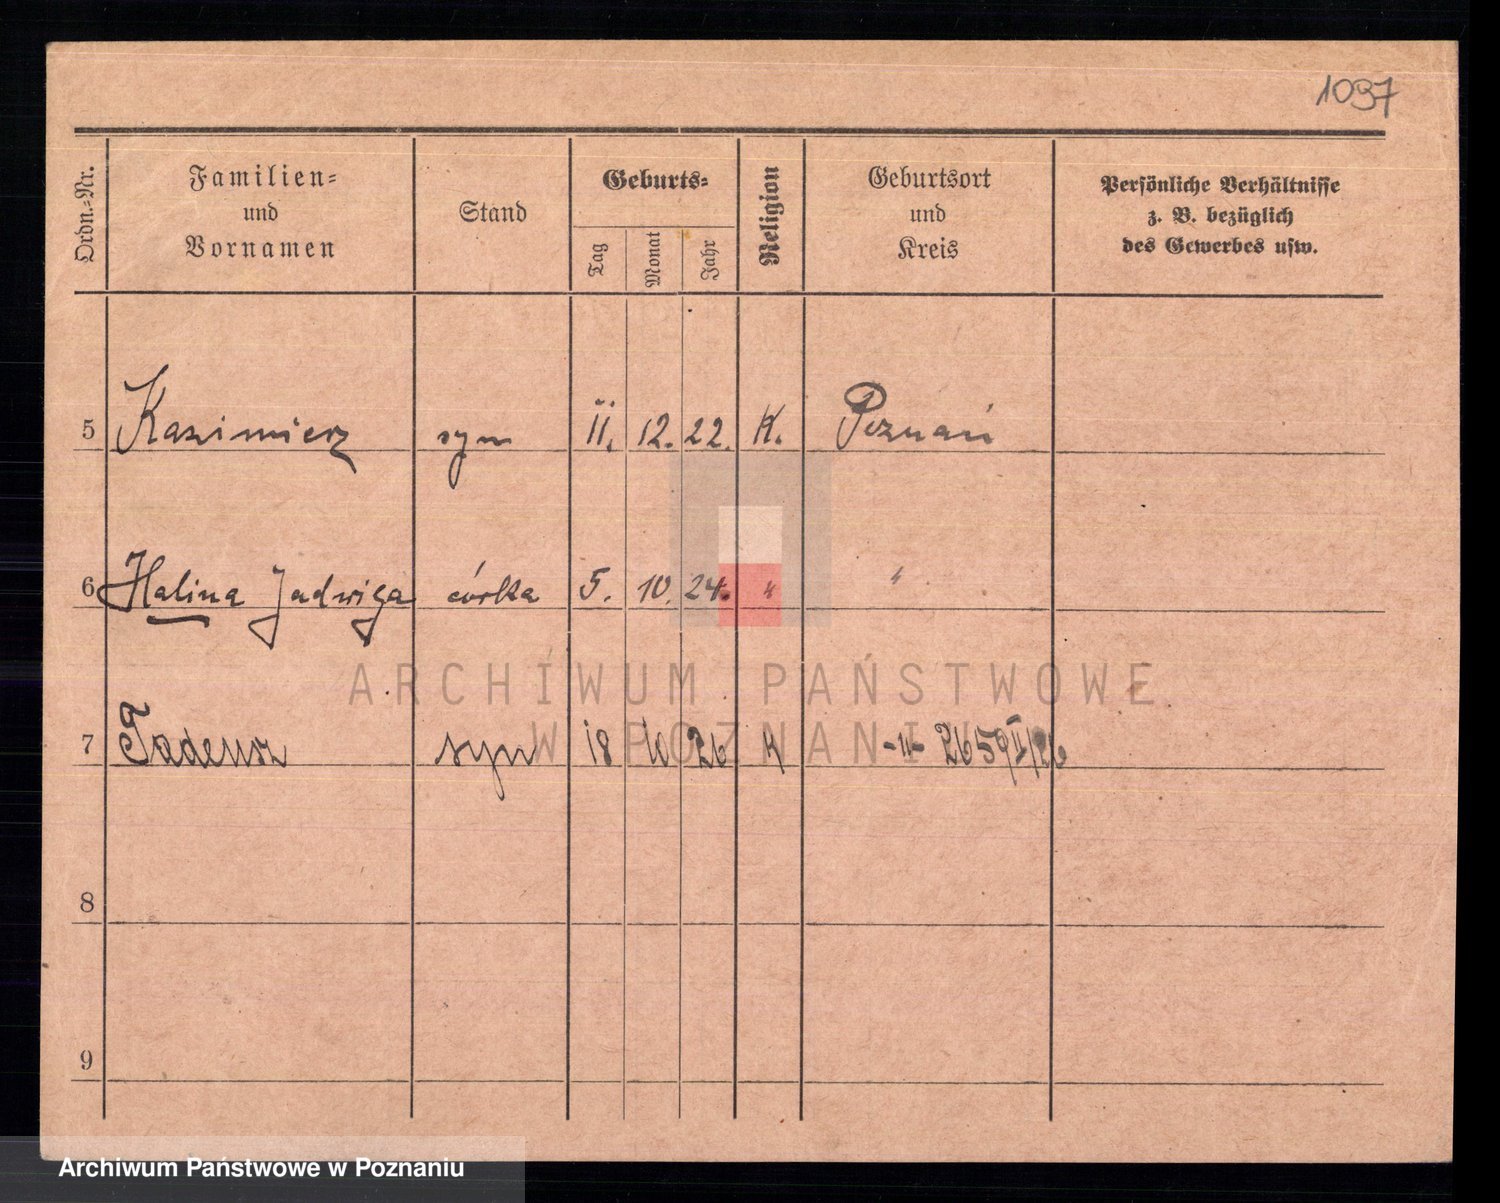 1097
Ordn.-Nr.
Familien-
und
Vornamen
Stand
Geburts-
Tag
Monat
Jahr
Religion
Geburtsort
und
Kreis
Persönliche Verhältnisse
z. B. bezüglich
des Gewerbes usw.
5 Kazimierz syn 11. 12. 22. K. Poznań
6 Halina Jadwiga córka 5. 10. 24. " "
ARCHIWUM PAŃSTWOWE
W POZNANIU
7 Tadeusz syn 18 10 26 K -"-
8
9
Archiwum Państwowe w Poznaniu